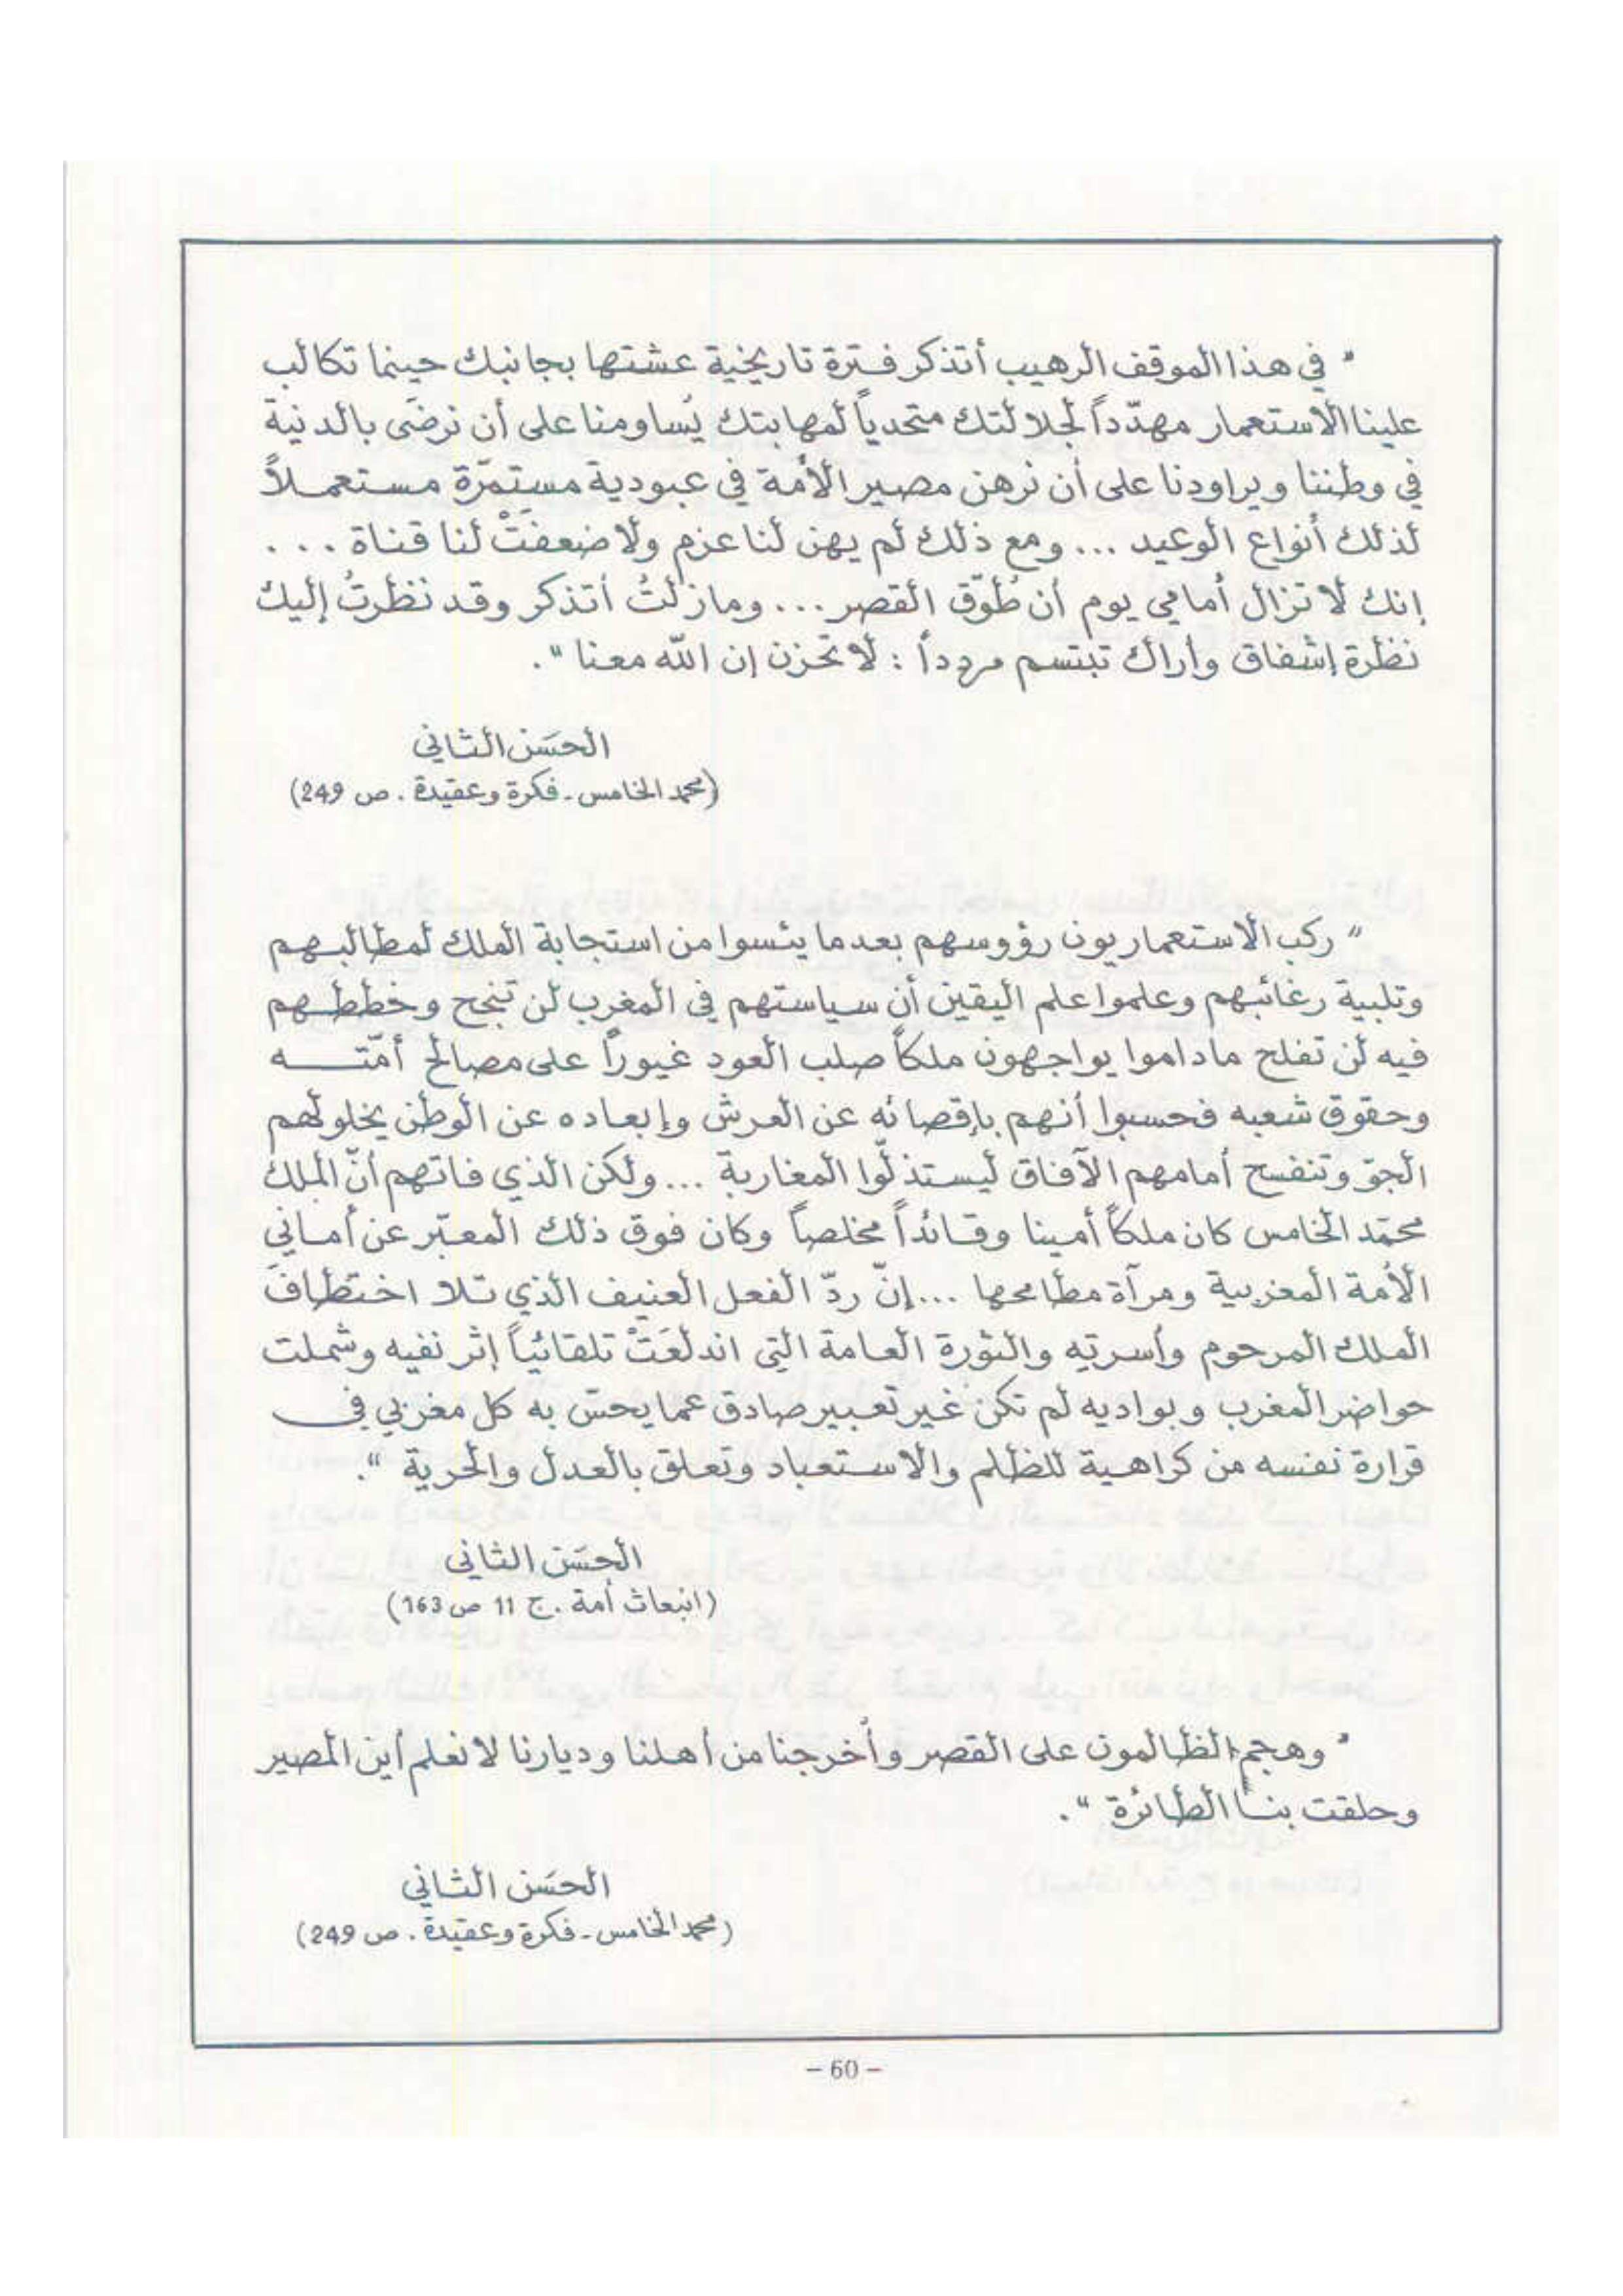 " في هذا الموقف الرهيب أتذكر فترة تاريخية عشتها بجانبك حينما تكالب
علينا الاستعمار مهدّداً لجلالتك متحدياً لمهابتك يُساومنا على أن نرضَى بالدنية
في وطننا ويراودنا على أن نرهن مصير الأمة في عبودية مستمّرة مستعملاً
لذلك أنواع الوعيد ... ومع ذلك لم يهن لنا عزم ولا ضعفَتْ لنا قناة ...
إنك لا تزال أمامي يوم أن طُوّق القصر ... وما زلتُ أتذكر وقد نظرتُ إليك
نظرة إشفاق وأراك تبتسم مردداً : لا تحزن إن الله معنا ".
الحسَن الثاني
(محمد الخامس - فكرة وعقيدة . ص 249)
" ركب الاستعماريون رؤوسهم بعدما يئسوا من استجابة الملك لمطالبهم
وتلبية رغائبهم وعلموا علم اليقين أن سياستهم في المغرب لن تنجح وخططهم
فيه لن تفلح ماداموا يواجهون ملكاً صلب العود غيوراً على مصالح أمّته
وحقوق شعبه فحسبوا أنهم بإقصائه عن العرش وإبعاده عن الوطن يخلو لهم
الجوّ وتنفسح أمامهم الآفاق ليستذلّوا المغاربة ... ولكن الذي فاتهم أنّ الملك
محمّد الخامس كان ملكاً أمينا وقائداً مخلصاً وكان فوق ذلك المعبّر عن أماني
الأمة المغربية ومرآة مطامحها ... إنّ ردّ الفعل العنيف الذي تلا اختطاف
الملك المرحوم وأسرته والثورة العامة التي اندلعَتْ تلقائياً إثر نفيه وشملت
حواضر المغرب وبواديه لم تكن غير تعبير صادق عما يحسّ به كل مغربي في
قرارة نفسه من كراهية للظلم والاستعباد وتعلق بالعدل والحرية ".
الحسَن الثاني
(انبعاث أمة . ج 11 ص 163)
" وهجم الظالمون على القصر وأخرجنا من أهلنا وديارنا لا نعلم أين المصير
وحلقت بنا الطائرة ".
الحسَن الثاني
(محمد الخامس - فكرة وعقيدة . ص 249)
– 60 –